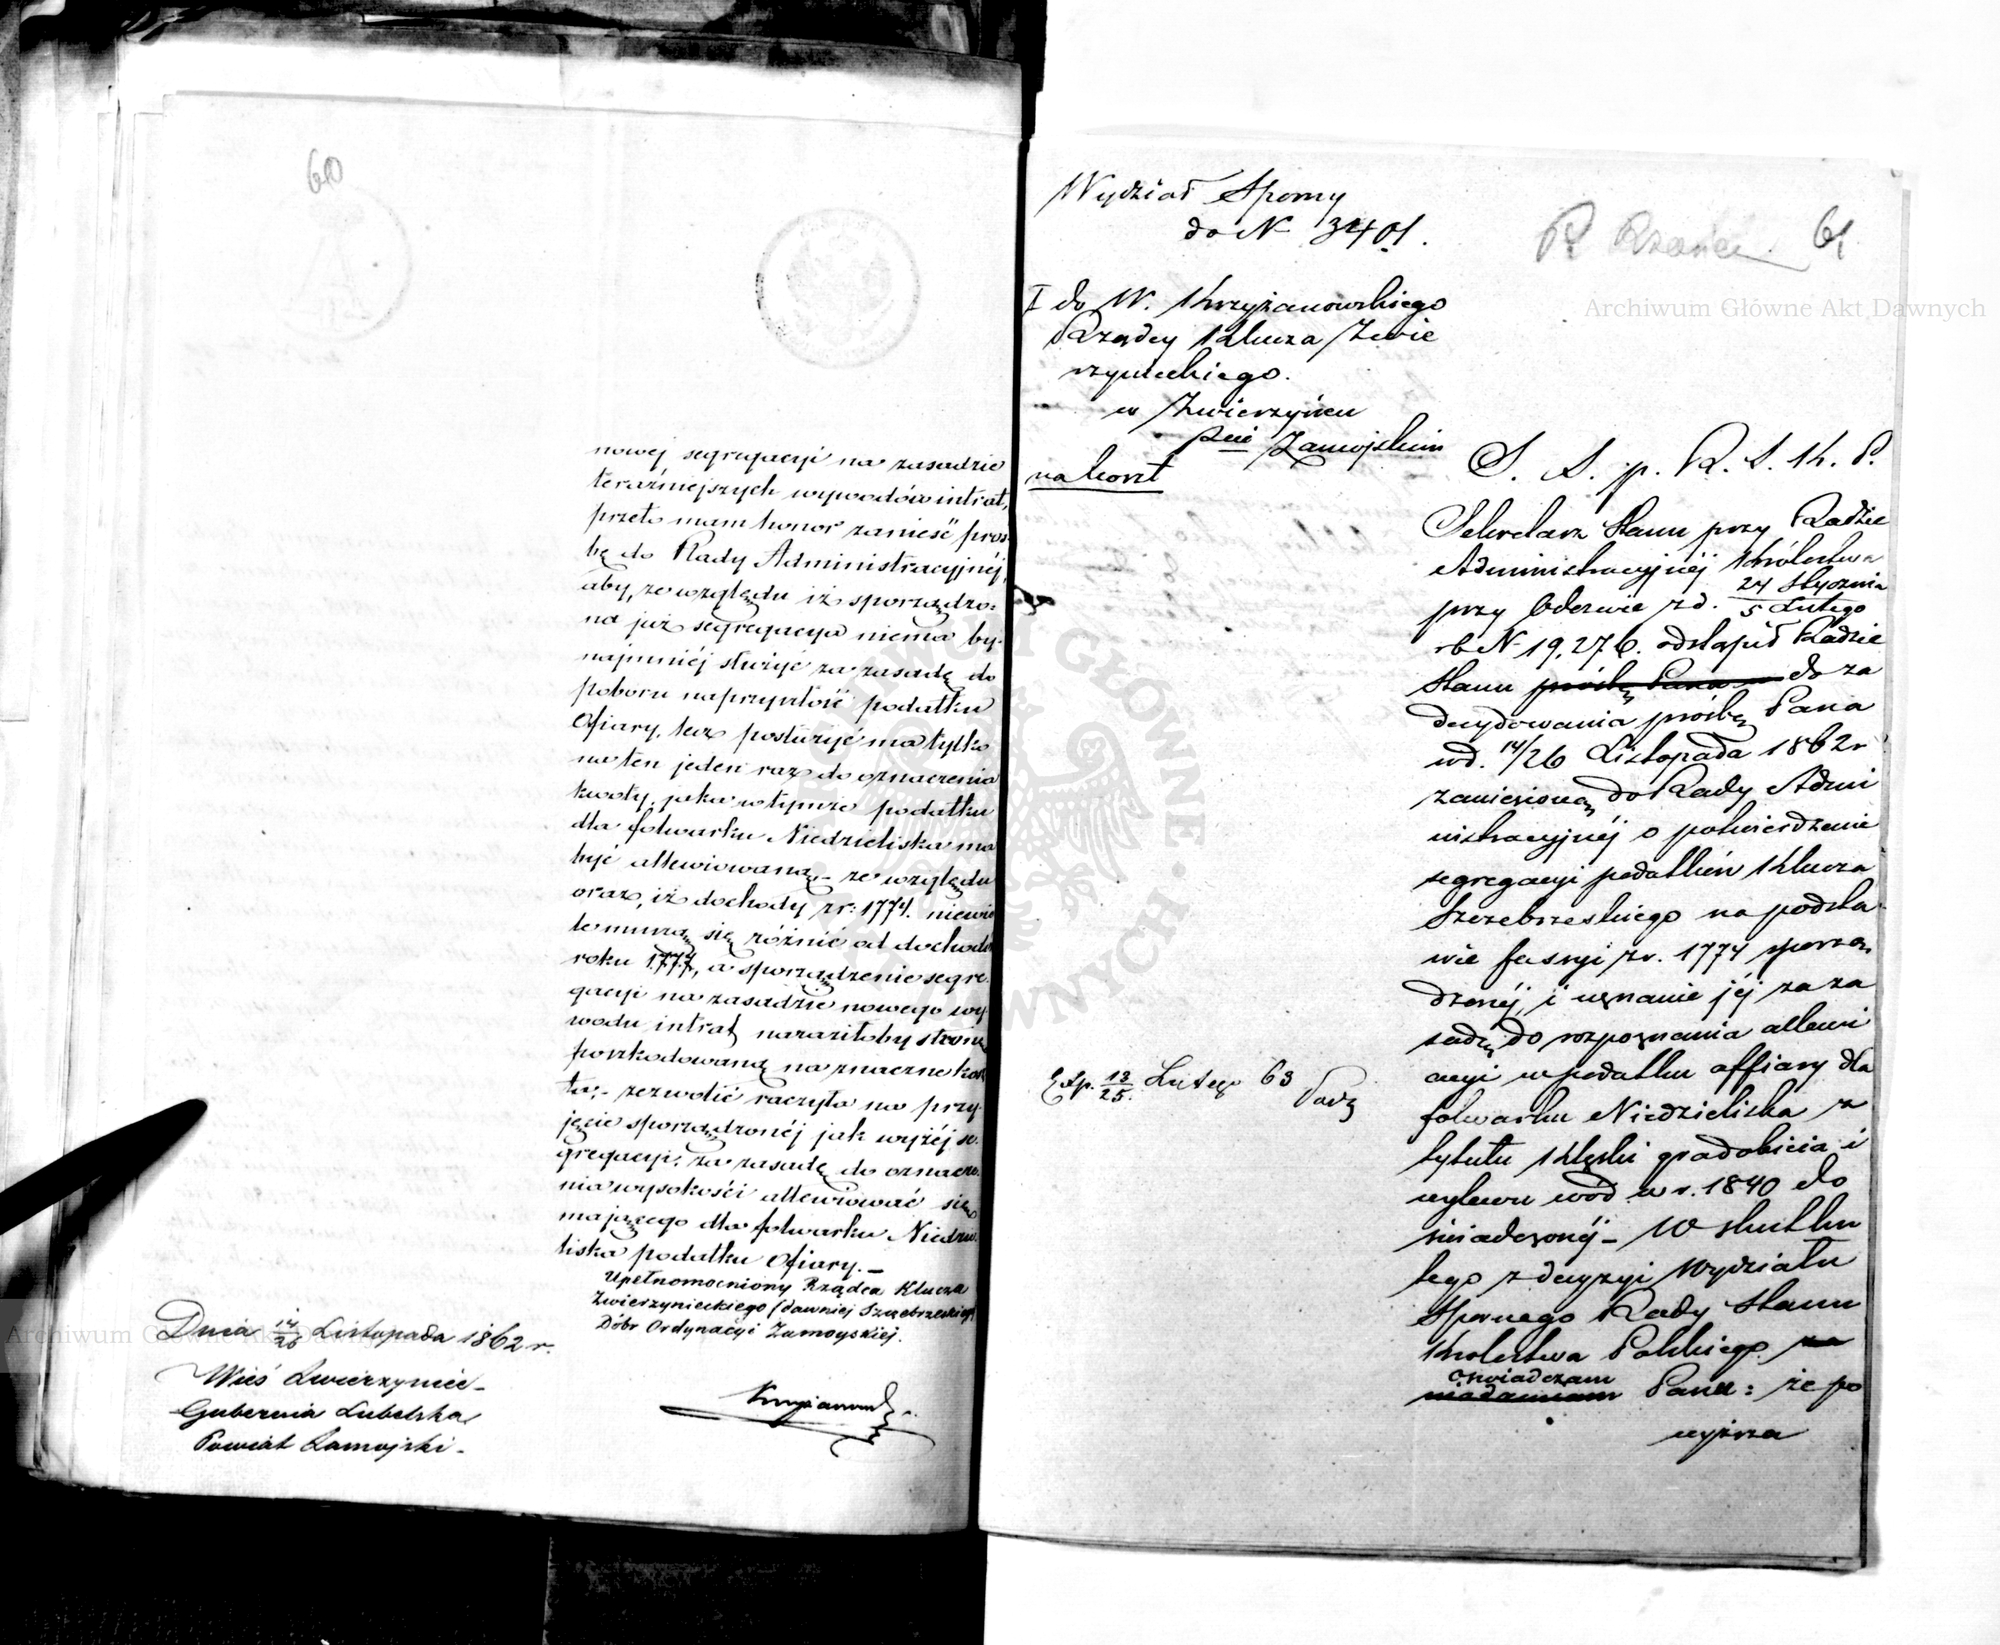 60
nowej segregacyi na zasadzie
teraźniejszych wywodów intrat,
przeto mam honor zanieść proś-
bę do Rady Administracyjnéj,
aby, ze względu iż sporządzo-
na już segregacya niema by-
najmniéj służyć za zasadę do
poboru naprzyszłość podatku
Ofiary, lecz posłużyć ma tylko
na ten jeden raz do oznaczenia
kwoty, jaka wtymże podatku
dla folwarku Niedzieliska ma
być allewiowaną,- ze względu
oraz, iż dochody z r: 1774. niewie
le muszą się różnić od dochodu
roku 1777, a sporządzenie segre-
gacyi na zasadzie nowego wy-
wodu intrat naraziłoby stronę
poszkodowaną na znaczne kosz
ta,- zezwolić raczyła na przy-
jęcie sporządzonéj jak wyżéj se-
gregacyi, za zasadę do oznacze-
nia wysokości allewiować się
mającego dla folwarku Niedzie-
liska podatku Ofiary.-
Upełnomocniony Rządca Klucza
Zwierzynieckiego (dawniej Szczebrzeskiego)
Dóbr Ordynacyi Zamoyskiej.
Dnia 14/26 Listopada 1862 r.
Wieś Zwierzyniec-
Gubernia Lubelska
Powiat Zamojski-
Krzyżanowski
Wydział Sporny
do N 3401.
61
I do W. Krzyżanowskiego
Rządcy Klucza Zwie
rzynieckiego.
w Zwierzyńcu
Zamojskim
na koszt
S. S. p. R. S. K. P.
Sekretarz Stanu przy Radzie
Administracyjnéj Królestwa
przy Odezwie z d. 24 Stycznia
5 Lutego
rb N 19,276. odstąpił Radzie
Stanu prośbę Pana do za
decydowania prośbę Pana
w d. 14/26 Listopada 1862 r
zaniesioną do Rady Admi
nistracyjnéj o potwierdzenie
segregacyi podatków Klucza
Szczebrzeskiego na podsta-
wie fassyi z r. 1774 sporzą
dzonéj, i uznanie jéj za za
sadę do rozpoznania allewi
acyi w podatku offiary dla
folwarku Niedzieliska z
tytułu klęski gradobicia i
wylewu wód w r. 1840 do
świadczonéj- W skutku
tego z decyzyi Wydziału
Spornego Rady Stanu
Królestwa Polskiego za
oświadczam
wiadamiam Pana: że po
wyższa
Exp. 13/25. Lutego 63
Archiwum Główne Akt Dawnych
Archiwum Główne Akt Dawnych